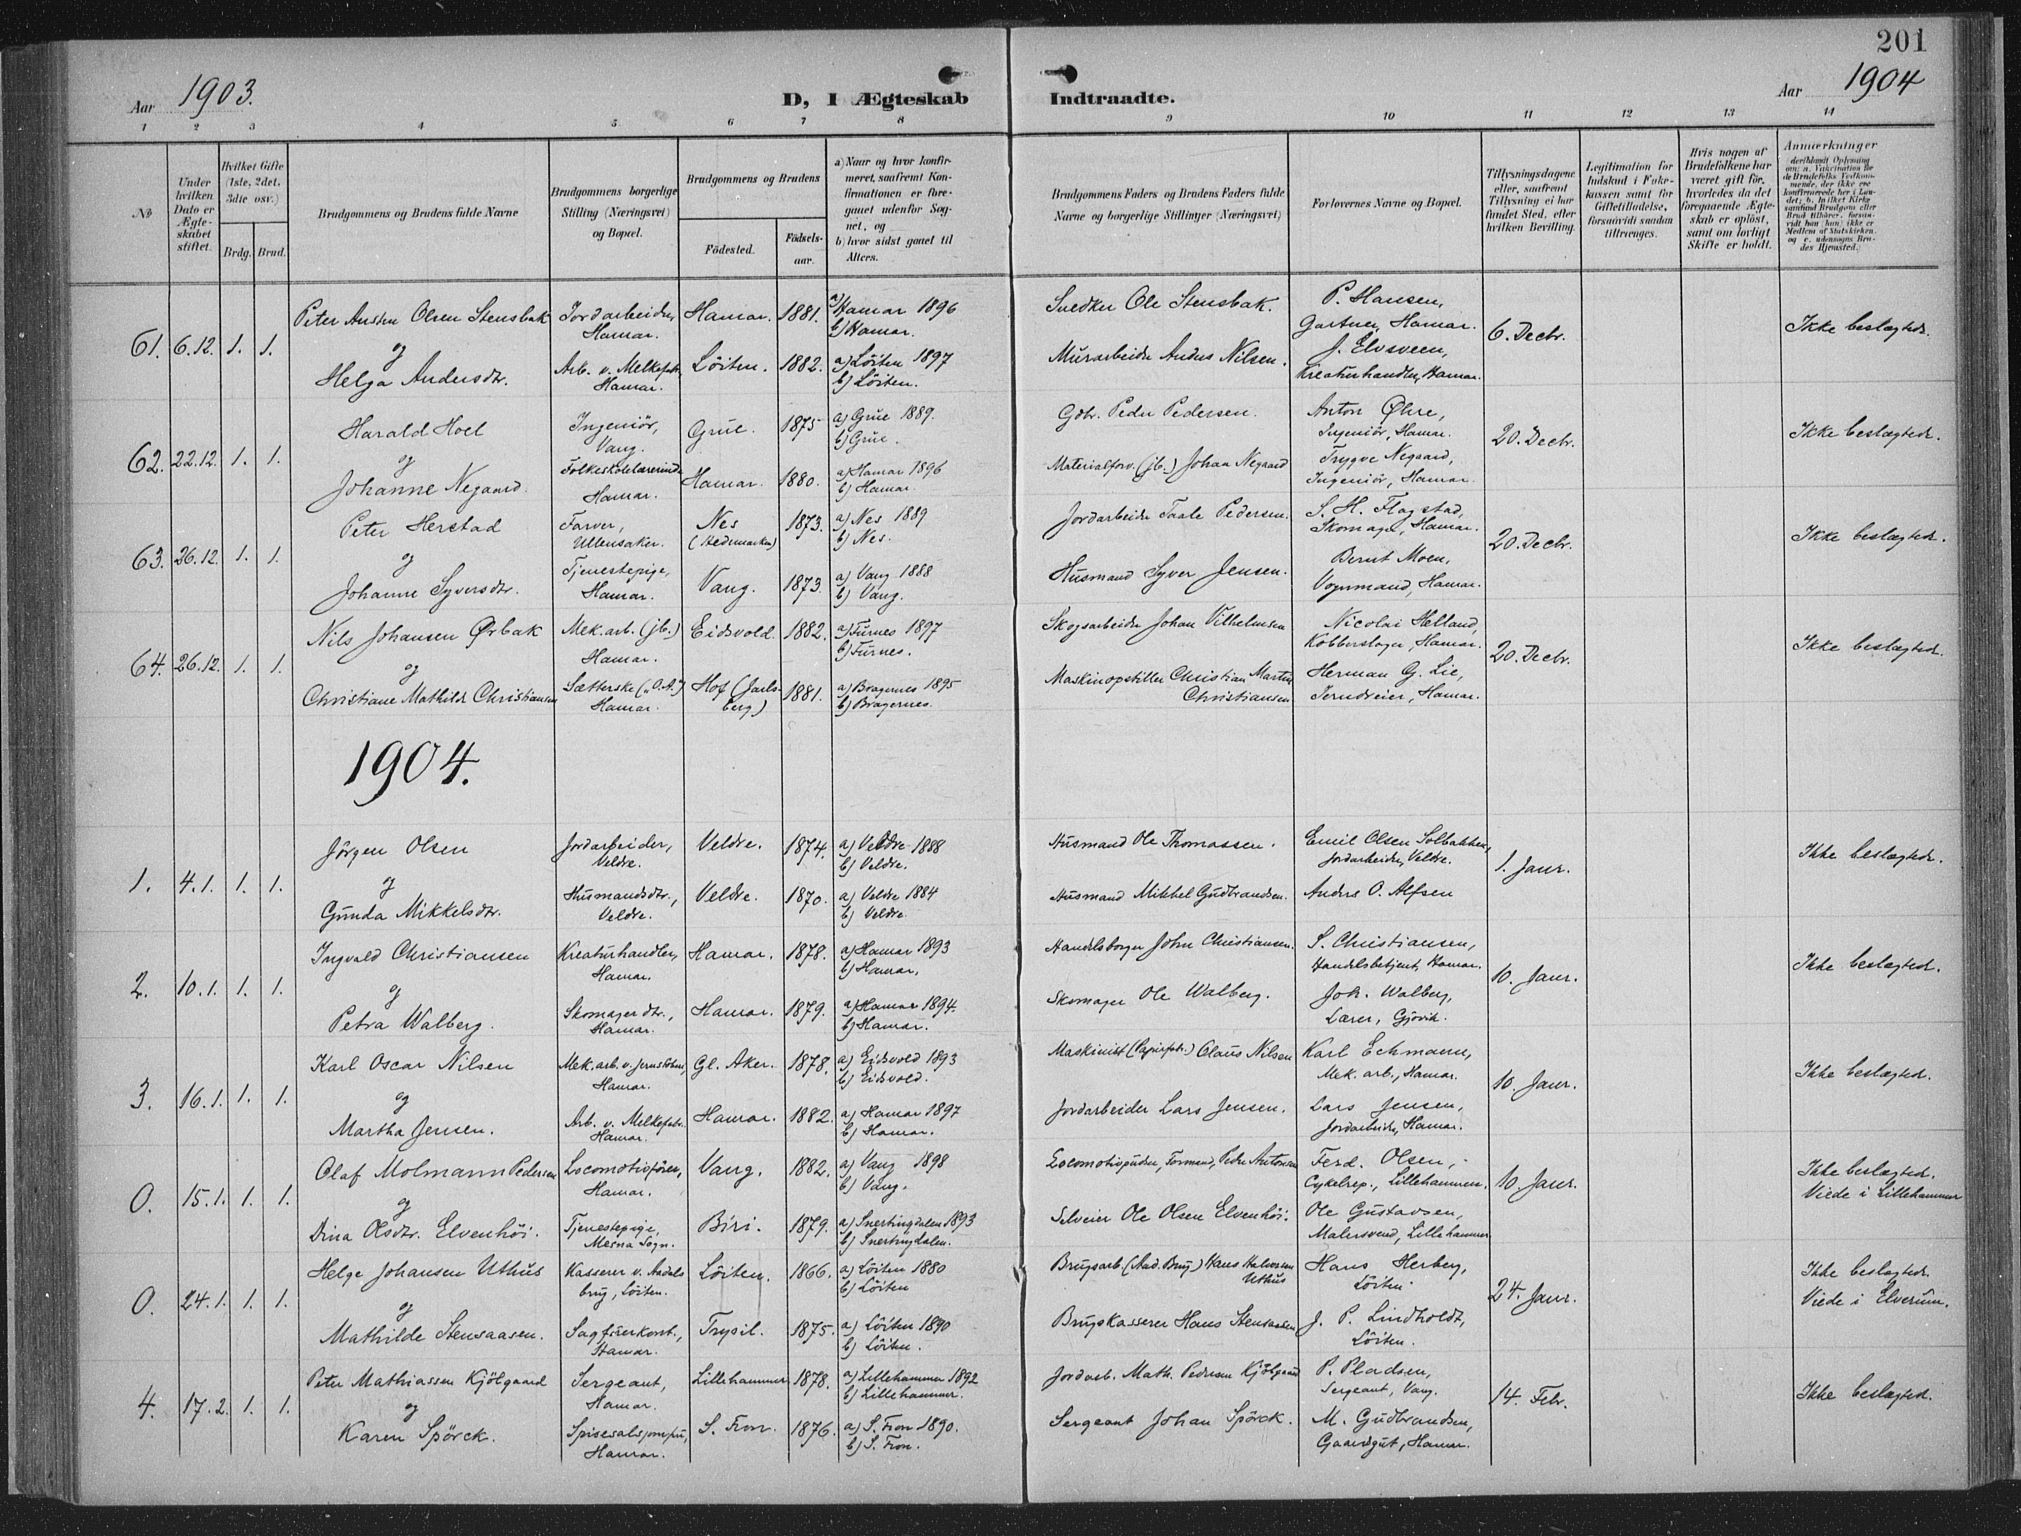 201
Aar 1903.
D, I Ægteskab Indtraadte.
Aar 1904
1 2 3 4 5 6 7 8 9 10 11 12 13 14
No
Under hvilken Dato er Ægteskabet stiftet.
Hvilket Gifte (1ste, 2det, 3die osv.)
Brdg. Brud.
Brudgommens og Brudens fulde Navne
Brudgommens borgerlige Stilling (Næringsvei) og Bopæl.
Brudgommens og Brudens
Födested.
Födsels-aar.
a) Naar og hvor konfirmeret, saafremt Konfirmationen er foregaaet udenfor Sognet, og
b) hvor sidst gaaet til Alters.
Brudgommens Faders og Brudens Faders fulde Navne og borgerlige Stillinger (Næringsvei)
Forlovernes Navne og Bopæl.
Tillysningsdagene eller, saafremt Tillysning ei har fundet Sted, efter hvilken Bevilling.
Legitimation for Indskud i Enkekassen samt for Giftetilladelse, forsaavidt saadan tiltrænges.
Hvis nogen af Brudefolkene har været gift før, hvorledes da det foregaaende Ægteskab er oplöst, samt om lovligt Skifte er holdt.
Anmærkninger
61. 6.12. 1. 1.
Peter Olsen Stensbak Jordarbeider, Hamar. Hamar. 1881. a) Hamar 1896 b) Hamar.
Ole Stensbak. P. Hansen, Gartner, Hamar. 6. Decbr. Ikke beslægtede.
og
Helga Andersdtr. Arb. v. Melkefabr., Hamar. Löiten. 1882. a) Löiten 1897 b) Löiten.
Murarbeider Anders Nilsen. J. Elvsveen, Kreaturhandler, Hamar.
62. 22.12. 1. 1.
Harald Hoel Ingeniör, Vang. Grue. 1875 a) Grue 1889. b) Grue.
Gdbr. Peder Pedersen. Anton Øhre, Ingeniör, Hamar. 20. Decbr. Ikke beslægtede.
og
Johanne Negaard. Folkeskolelærerinde Hamar. Hamar. 1880. a) Hamar 1896 b) Hamar
Materialforv. (jb.) Johan Negaard Trygve Negaard, Ingeniör, Hamar.
63. 26.12. 1. 1.
Peter Herstad Farver, Ullensaker. Nes (Hedemarken) 1873. a) Nes 1889 b) Nes.
Jordarbeider Taale Pedersen. S. H. Flagstad, Skomager, Hamar. 20. Decbr. Ikke beslægtede.
og
Johanne Syversdtr. Tjenestepige, Hamar. Vang. 1873. a) Vang 1888 b) Vang.
Husmand Syver Jensen. Bernt Moen, Vognmand, Hamar.
64. 26.12. 1. 1.
Nils Johansen Ørbak Mek. arb. (jb.) Hamar. Eidsvold. 1882. a) Furnes 1897 b) Furnes.
Skogsarbeider Johan Vilhelmsen Nicolai Helland, Kobberslager, Hamar. 20. Decbr. Ikke beslægtede.
og
Christiane Mathilde Christiansen Sætterske („O.A.") Hamar. Hof (Jarlsberg) 1881. a) Bragernes 1895 b) Bragernes.
Maskinopstiller Christian Martin Christiansen Herman G. Lie, Jerndreier, Hamar.
1904.
1. 4.1. 1. 1.
Jörgen Olsen Jordarbeider, Veldre. Veldre. 1874. a) Veldre 1888 b) Veldre.
Husmand Ole Thomassen. Emil Olsen Solbakken, Jordarbeider, Veldre. 1. Januar. Ikke beslægtede.
og
Gunda Mikkelsdtr. Husmandsdtr., Veldre. Veldre. 1870. a) Veldre 1884 b) Veldre.
Husmand Mikkel Gudbrandsen. Anders O. Alfsen
2. 10.1. 1. 1.
Ingvald Christiansen Kreaturhandler, Hamar. Hamar. 1878. a) Hamar 1893 b) Hamar.
Handelsborger John Christiansen. S. Christiansen, Handelsbetjent, Hamar. 10. Januar. Ikke beslægtede.
og
Petra Walberg. Skomagerdtr., Hamar. Hamar. 1879. a) Hamar 1894. b) Hamar.
Skomager Ole Walberg. Joh. Walberg, Lærer, Gjövik.
3. 16.1. 1. 1.
Karl Oscar Nilsen Mek. arb. v. Jernstöberi, Hamar. Gl. Aker. 1878. a) Eidsvold 1893 b) Eidsvold.
Maskinist (Papirfabr.) Claus Nilsen Karl Echmann, Mek. arb., Hamar. 10. Januar. Ikke beslægtede.
og
Martha Jensen. Arb. v. Melkefabr. Hamar. Hamar. 1882. a) Hamar 1897 b) Hamar.
Jordarbeider Lars Jensen. Lars Jensen, Jordarbeider, Hamar.
0. 15.1. 1. 1.
Olaf Molmann Pedersen Locomotivfører, Hamar. Vang. 1882. a) Vang 1898 b) Vang.
Locomotivpudser, Peder Antonsen Ferd. Olsen, Cykelrep., Lillehammer. 10. Januar. Ikke beslægtede. Viede i Lillehammer
og
Dina Olsdtr. Elvenhöi. Tjenestepige, Mesna Sogn. Biri. 1879. a) Snertingdalen 1893 b) Snertingdalen.
Selveier Ole Olsen Elvenhöi. Ole Gustavsen, Malersvend, Lillehammer
0. 24.1. 1. 1.
Helge Johansen Uthus Kasserer v. Aadals brug, Löiten. Löiten. 1866. a) Löiten 1880 b) Löiten
Brugsarb. (Aad. Brug) Hans Halvorsen Uthus Hans Herberg, Löiten 24. Januar. Ikke beslægtede. Viede i Elverum.
og
Mathilde Stensaasen. Sagförerkont., Hamar. Trysil. 1875. a) Löiten 1890 b) Löiten.
Brugskasserer Hans Stensaasen J. P. Lindholdt, Löiten.
4. 17.2. 1. 1.
Peter Mathiassen Kjölgaard Sergeant, Hamar. Lillehammer 1878. a) Lillehammer 1892 b) Lillehammer.
Jordarb. Math. Pedersen Kjölgaard P. Pladsen, Sergeant, Vang. 14. Febr. Ikke beslægtede.
og
Karen Spörck. Spisesalsjomfru, Hamar. S. Fron. 1876. a) S. Fron 1890. b) S. Fron.
Sergeant Johan Spörck. M. Gudbrandsen, Gaardsgut, Hamar.